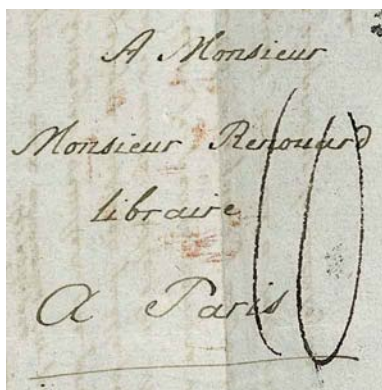 A Monsieur
Monsieur Renouard
libraire
A Paris